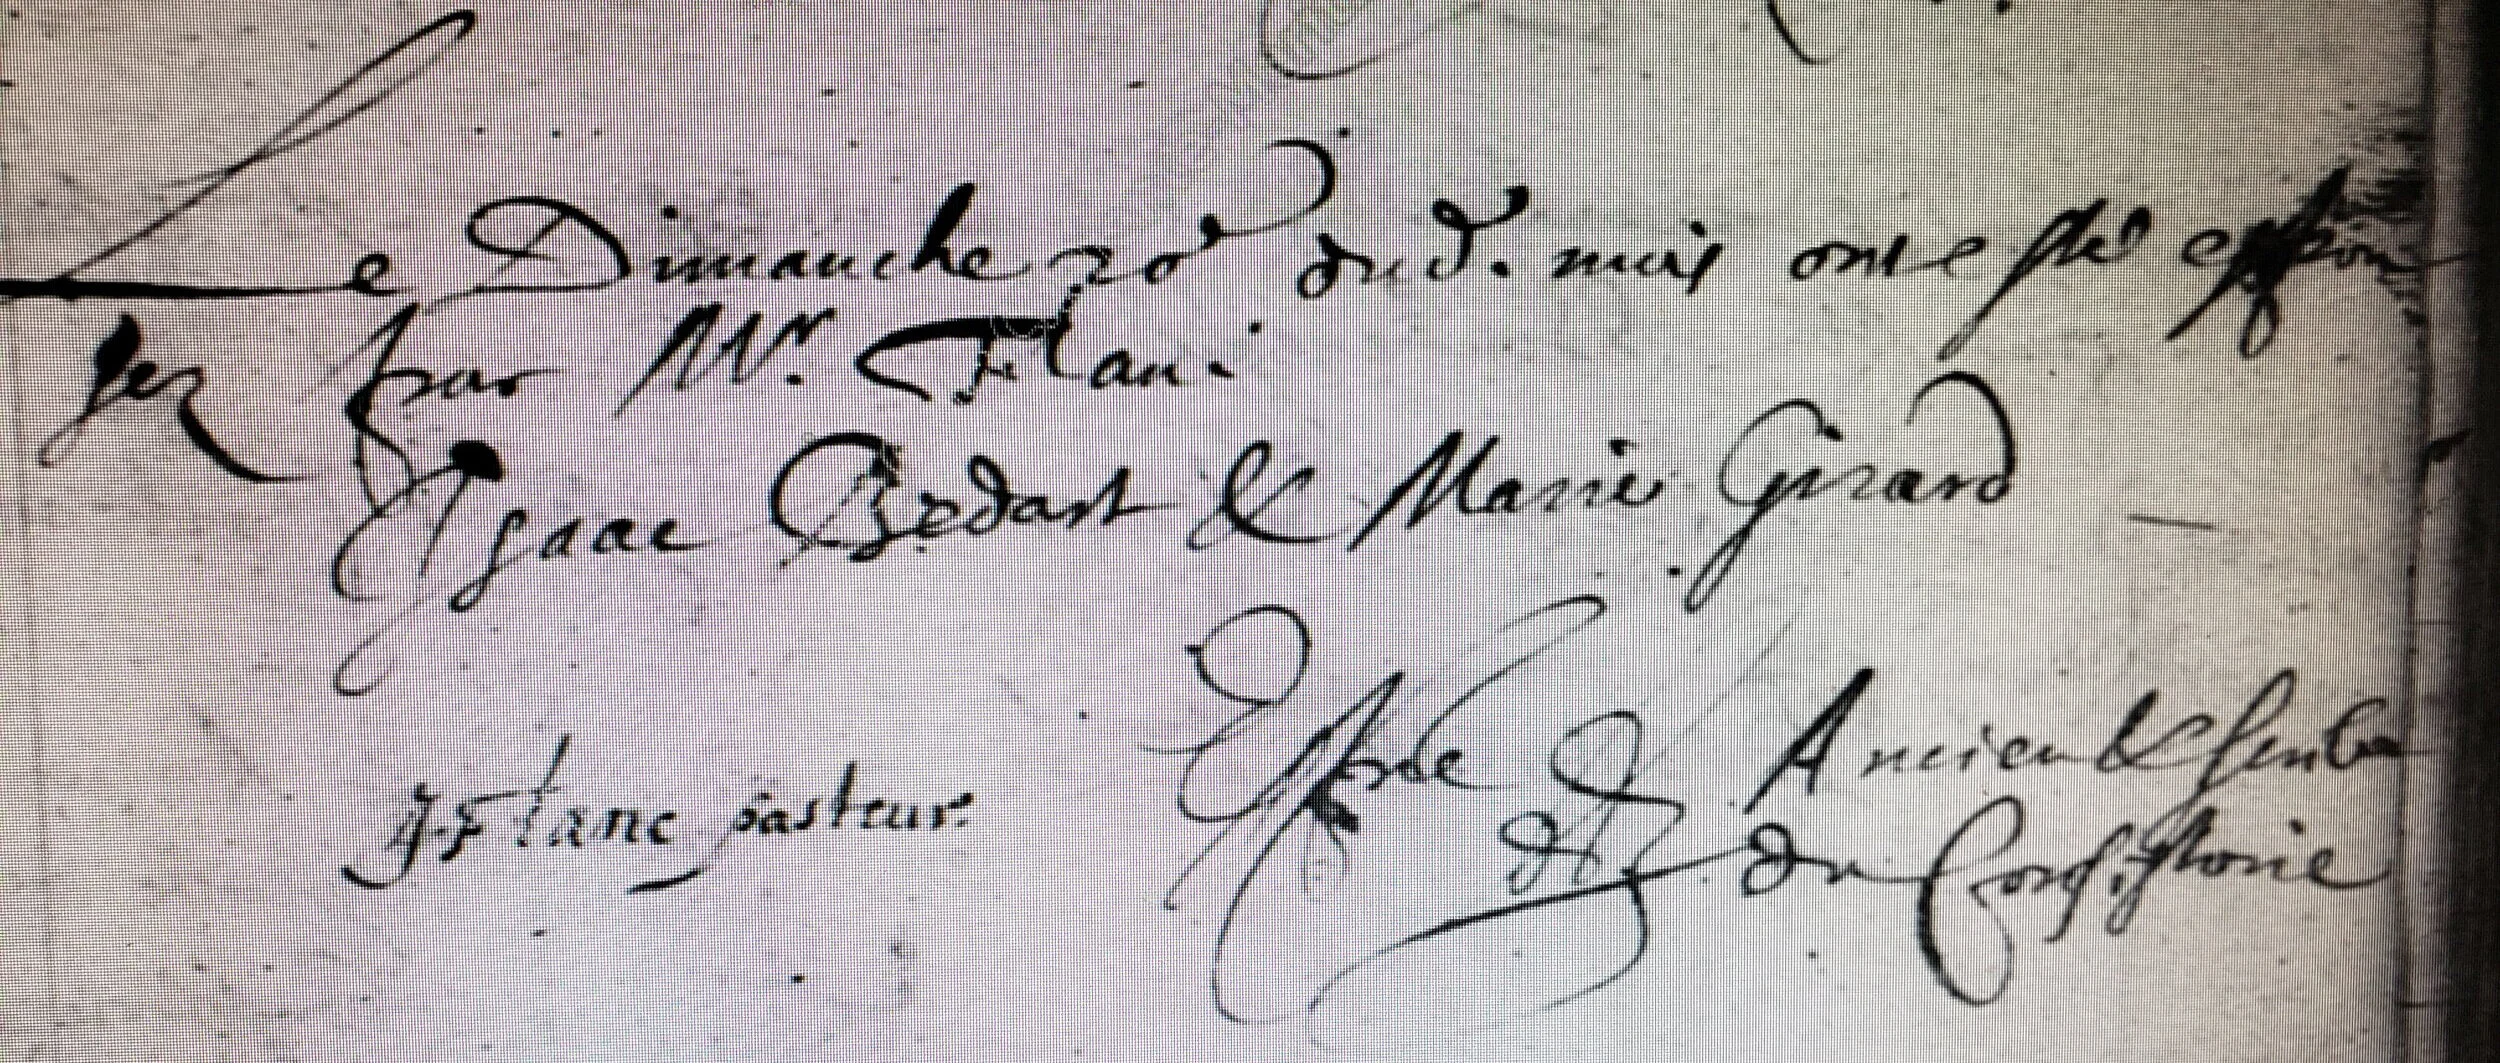 Le Dimanche 20e dud. mois ont este espou
sez par Mr. Flanc
Isaac Bedart & Marie Girard
J. Flanc pasteur. Ancien &
du Consistoire